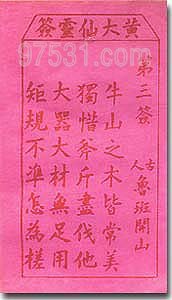 黃大仙靈簽
第三簽
古人 魯班開山
牛山之木皆常美
獨惜斧斤盡伐他
大器大材無足用
矩規不準怎為槎